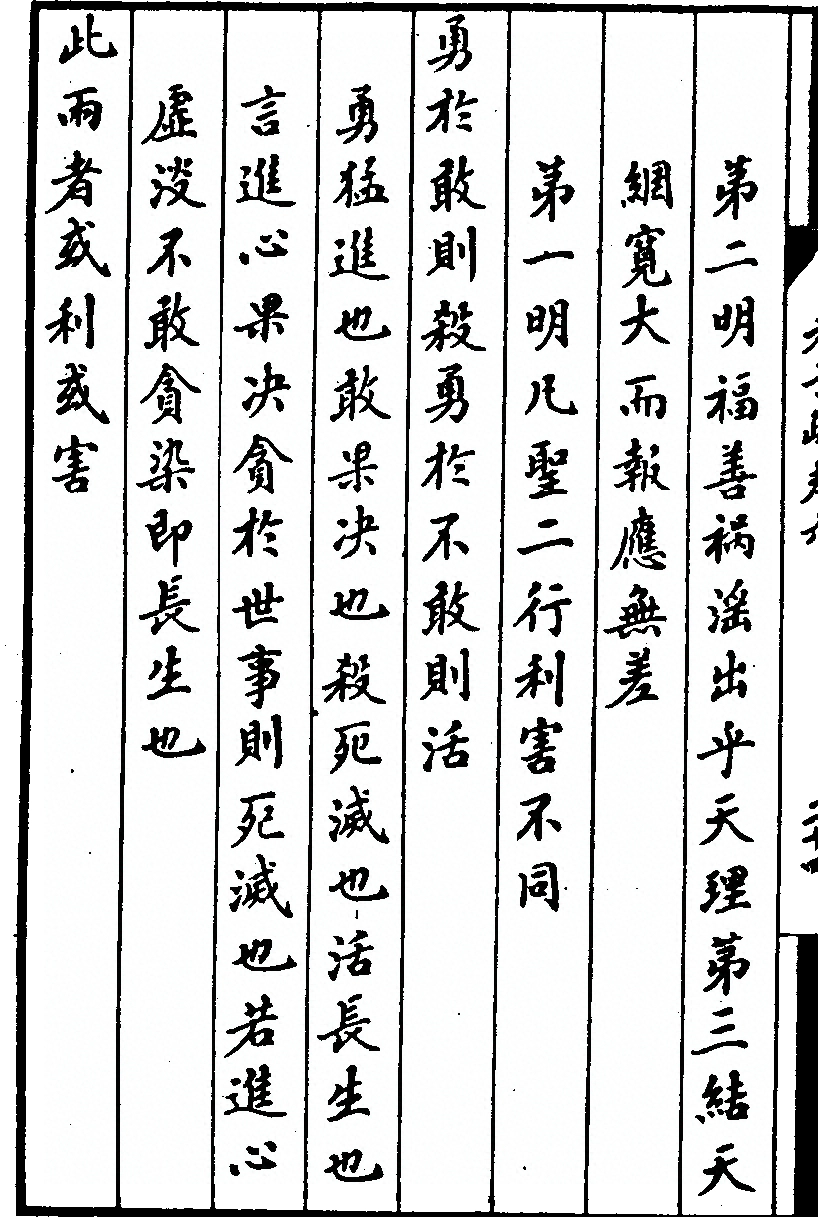 第二明福善禍淫出乎天理第三結天
網寬大而報應無差
第一明凡聖二行利害不同
勇於敢則殺勇於不敢則活
勇猛進也敢果決也殺死滅也活長生也
言進心果決貪於世事則死滅也若進心
虛淡不敢貪染即長生也
此兩者或利或害